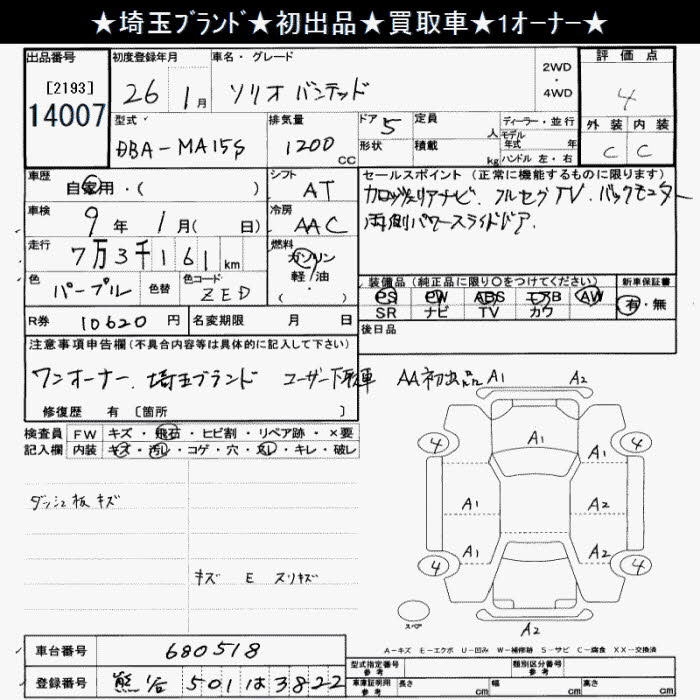 ★埼玉ブランド★初出品★買取車★1オーナー★
出品番号
[2193]
14007
初度登録年月
26 1月
車名・グレード
ソリオ バンデッド
2WD
・
4WD
評価点
4
外装 内装
C C
型式
DBA-MA15S
排気量
1200 CC
ドア 5
形状
定員 人
積載 kg
ディーラー・並行
モデル年式 年
ハンドル 左・右
車歴
自家用・( )
シフト
AT
セールスポイント(正常に機能するものに限ります)
カロッツェリアナビ. フルセグTV. バックモニター
両側パワースライドドア.
車検
9年 1月( 日)
冷房
AAC
走行
7万3千161km
燃料
ガソリン
軽/油
・( )
色
パープル
色替
色コード
ZED
装備品(純正品に限り○をつけてください)
PS PW ABS エアB AW
SR ナビ TV カワ
新車保証書
有・無
R券 10620円
名変期限 月 日
後日品
注意事項申告欄(不具合内容等は具体的に記入して下さい)
ワンオーナー. 埼玉ブランド ユーザー下取車 AA初出品
修復歴 有 [箇所 ]
検査員記入欄
FW キズ・飛石・ヒビ割・リペア跡・×要
内装 キズ・汚レ・コゲ・穴・スレ・キレ・破レ
ダッシュ板キズ
キズ E スリキズ
A1 A2
4 4
A1
A1 A2
A1 A2
4 4
スペア
A2
A-キズ E-エクボ U-凹み W-補修跡 S-サビ C-腐食 XX-交換済
車台番号 680518
登録番号 熊谷 501 は 3822
型式指定番号 参考
類別区分番号 参考
車庫証明 参考 長さ cm 幅 cm 高さ cm